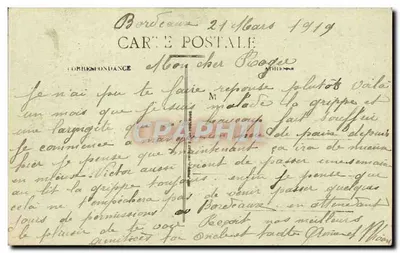 Bordeaux 21 Mars 1919
CARTE POSTALE
CORRESPONDANCE
Mon cher Roger
Je n'ai pu te faire reponse plutôt voilà
un mois que je suis malade la grippe et
une laryngite beaucoup fait souffrir
Je commence à depuis
hier Je pense que maintenant ça ira de mieux
en mieux Victor aussi vient de passer une semaine
au lit la grippe toujours enfin je pense que
cela ne l'empêchera pas de venir passer quelques
jours de permissions à Bordeaux en attendant
le plaisir de te voir Reçoit nos meilleurs
Oncle et tante